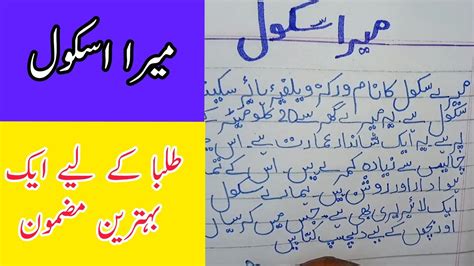 میرا اسکول
طلبا کے لیے ایک
بہترین مضمون
میرا سکول
میرے سکول کا نام ورکرز ویلفیئر ہائر سکینڈ
سکول ہے۔ یہ میرے گھر سے 20 کلو میٹر کے
ہے۔ یہ ایک شاندار عمارت ہے۔ اس میں
چالیس سے زیادہ کمرے ہیں۔ اس کے تما
ہوادار اور روشن ہیں۔ ہمارے سکول
ایک لائبریری بھی ہے۔ جس میں کرسیاں
اور بچوں کے لیے دلچسپ کتابیں